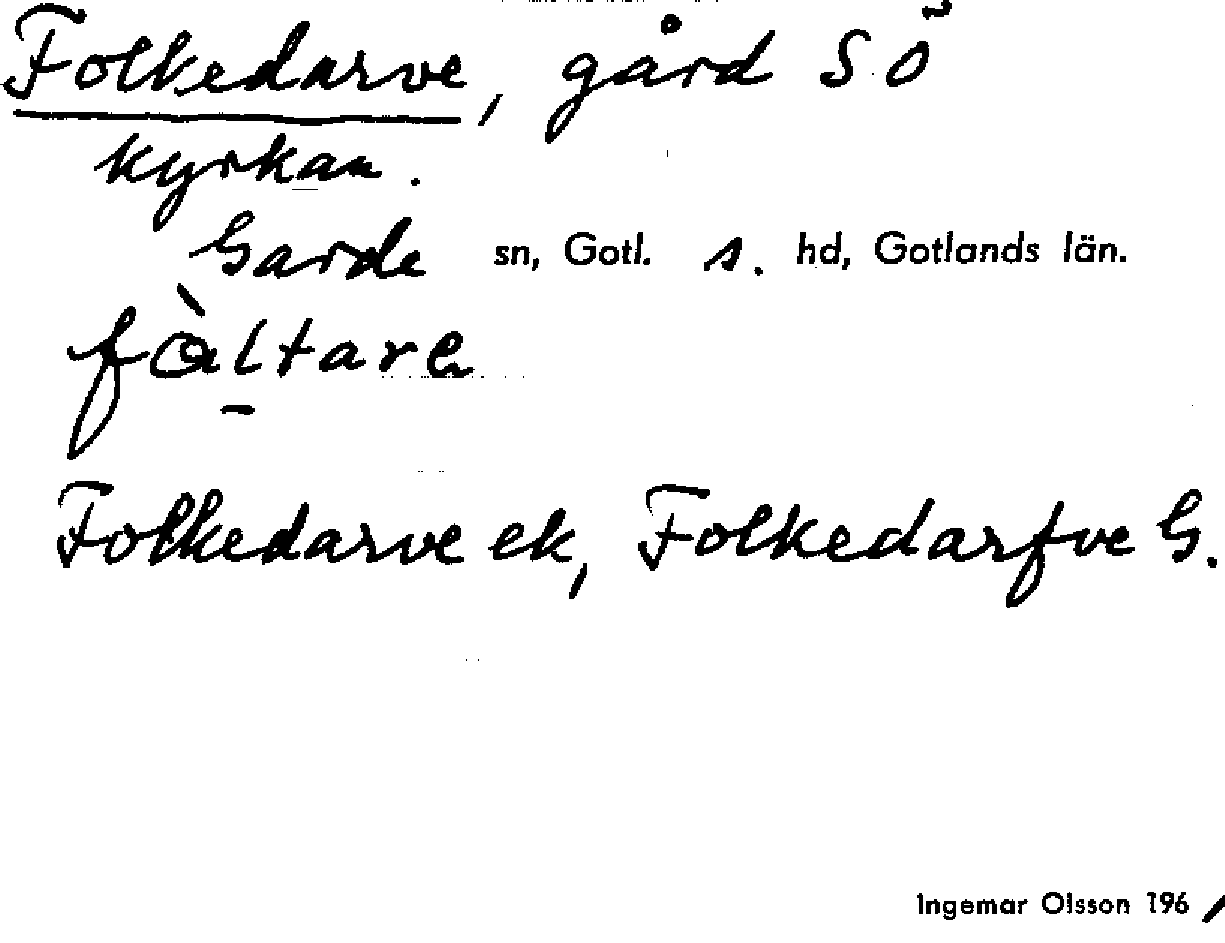 Folkedarve, gård SÖ
kyrkan.
Garde sn, Gotl. s. hd, Gotlands län.
fàltare
Folkedarve ek, Folkedarfve G.
Ingemar Olsson 196/